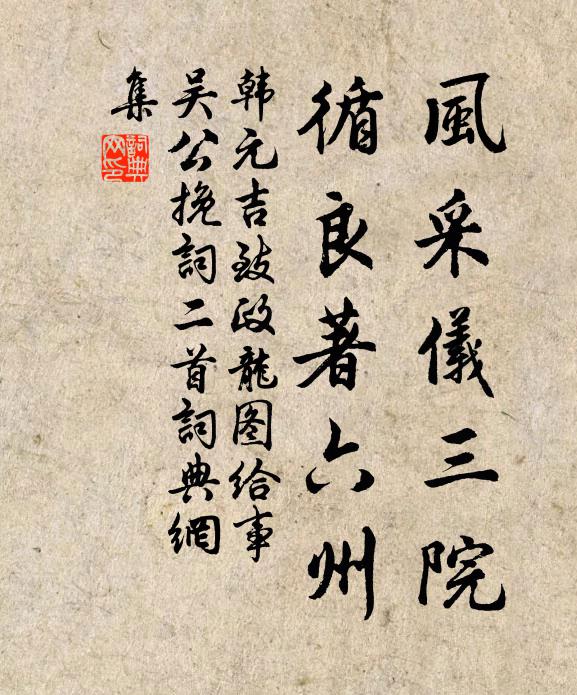 風采儀三院
循良著六州
韩元吉致政龍图给事
吴公挽詞二首詞典網
集
詞典網印